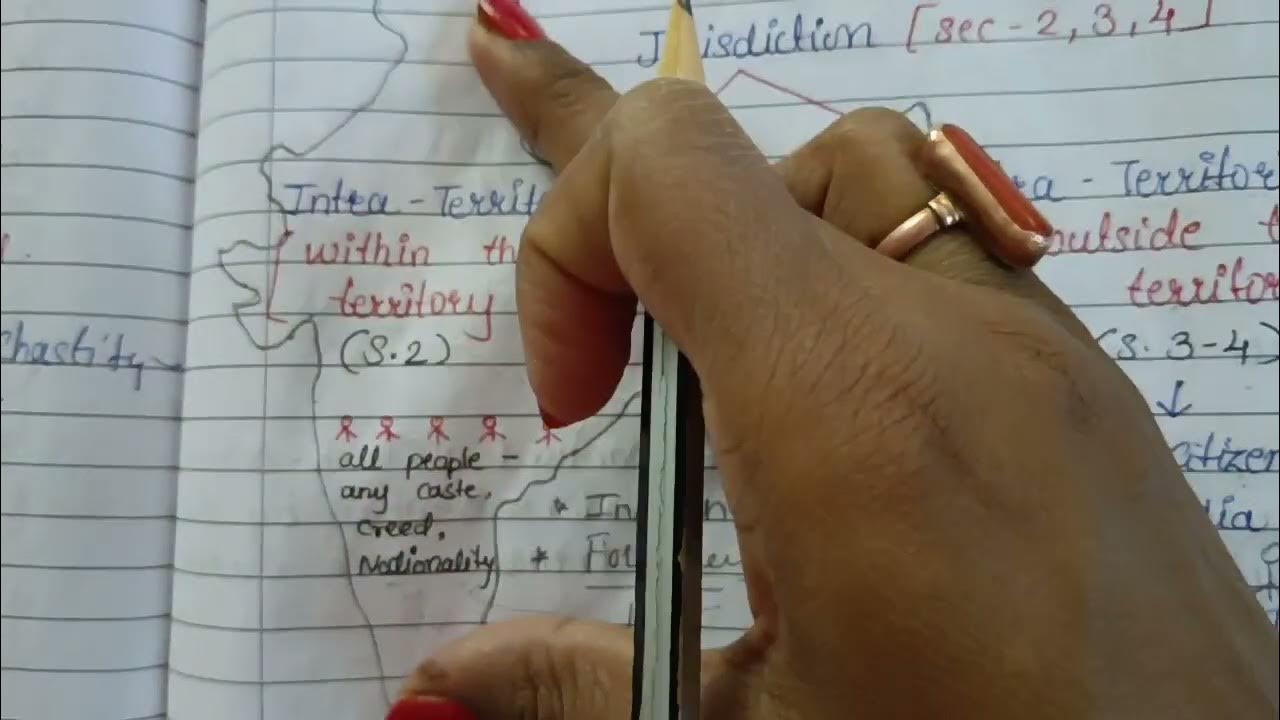 Jurisdiction [sec - 2, 3, 4]
Intra - Territ
within th
territory
(S.2)
all people -
any caste,
creed,
Nationality
a - Territor
outside t
territor
(S. 3-4)
citizen
Chastity